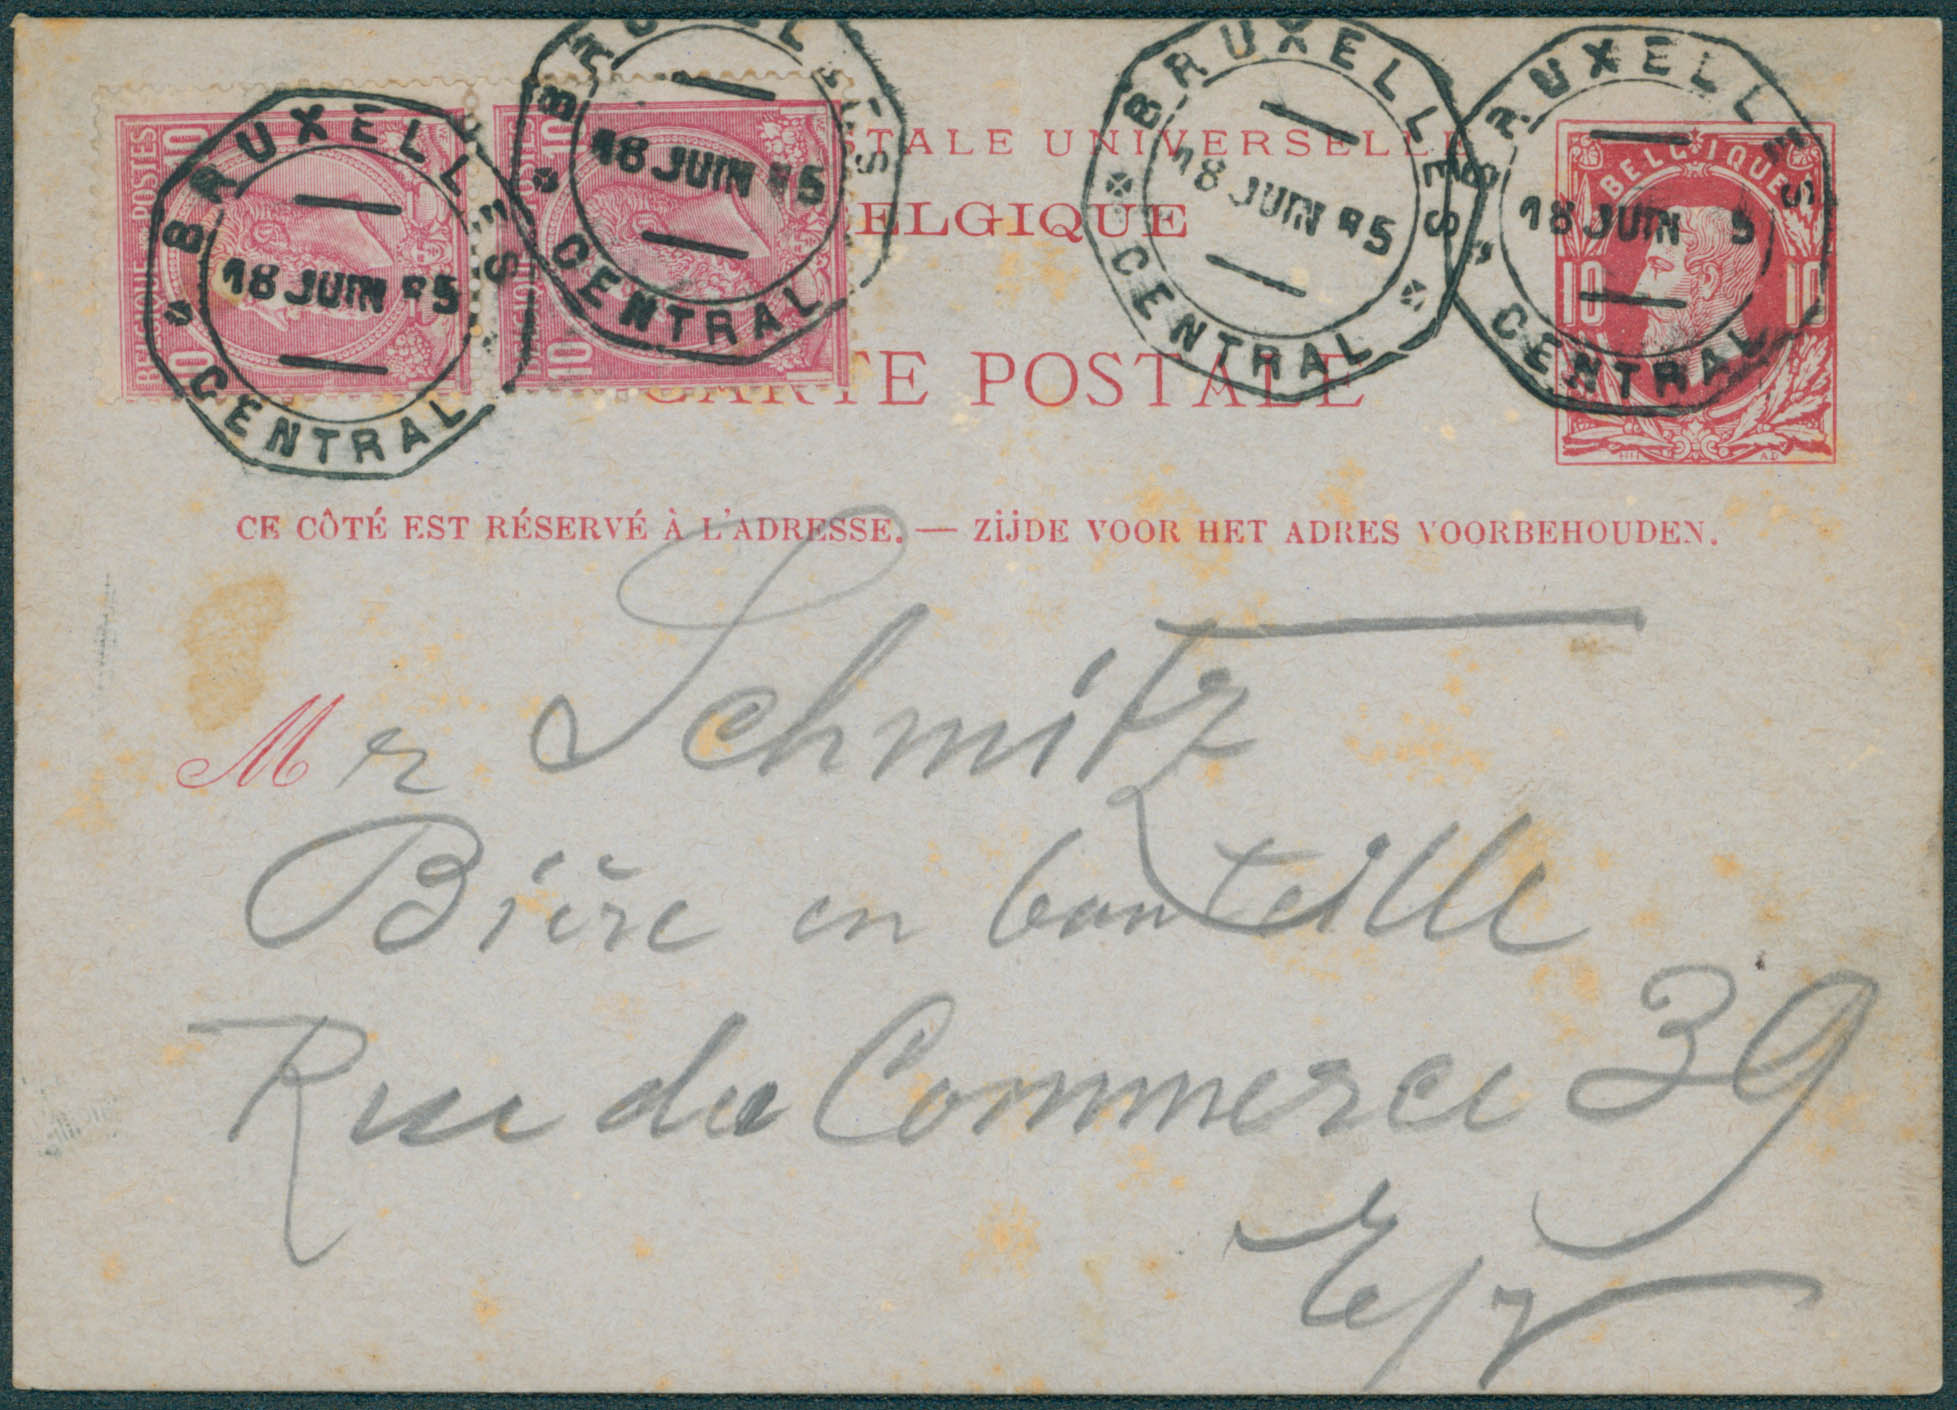 BRUXELLES
18 JUIN 95
CENTRAL
BRUXELLES
18 JUIN 95
CENTRAL
BRUXELLES
18 JUIN 95
CENTRAL
BRUXELLES
18 JUIN 5
CENTRAL
BELGIQUE POSTES
10 10
BELGIQUE POSTES
10 10
BELGIQUE
10 10
STALE UNIVERSELLE
ELGIQUE
CARTE POSTALE
CE CÔTÉ EST RÉSERVÉ À L'ADRESSE. — ZIJDE VOOR HET ADRES VOORBEHOUDEN.
Mr Schmitz
Bière en bouteille
Rue du Commerce 39
E/v